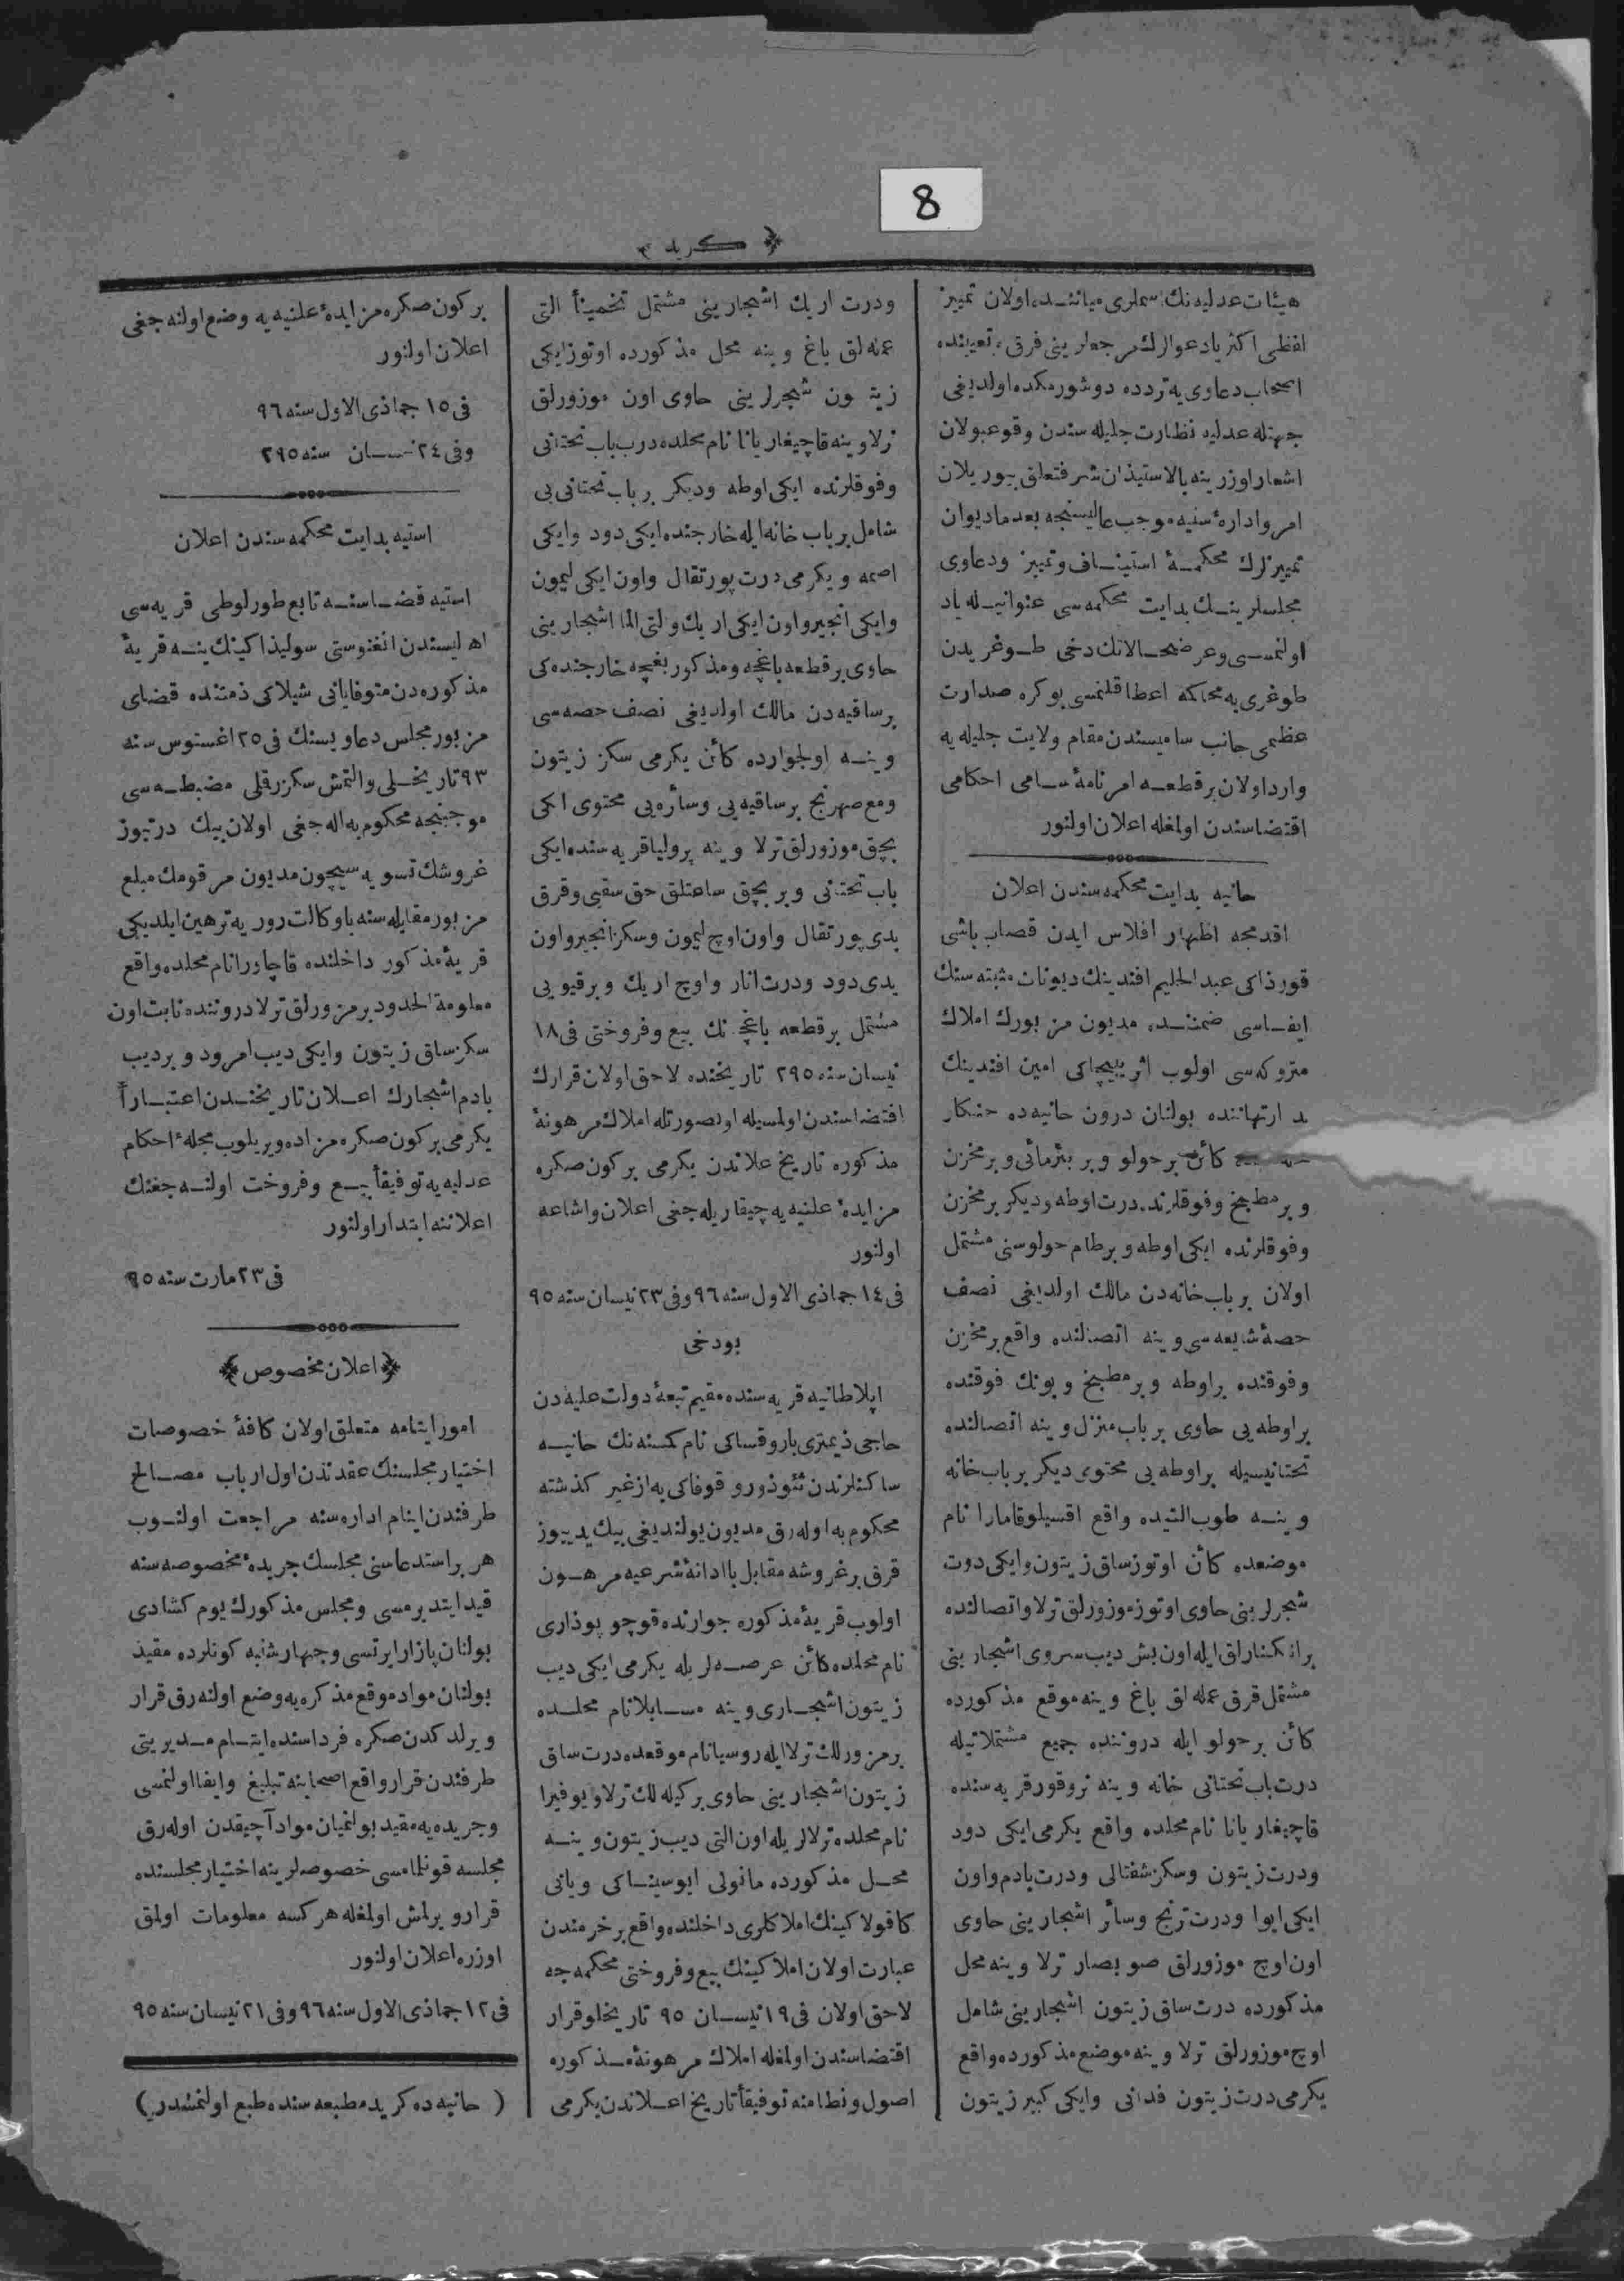 8
كريد
هيئات عدليه نك اسملرى مياننده اولان تمييز
لفظى اكثريا دعوالرك مرجعلرينى فرق و تعيينده
اصحاب دعاوى يه تردده دوشورمكده اولديغى
جهتله عدليه نظارت جليله سندن وقوعبولان
اشعار اوزرينه بالاستيذان شرفتعلق بيوريلان
امر و اداره سنيه موجب عاليسنجه بعدما ديوان
تمييزلرك محكمۀ استيناف و تمييز و دعاوى
مجلسلرينك بدايت محكمه سى عنوانيله ياد
اولنمسى و عرضحالانك دخى طوغريدن
طوغرى يه محاكمه اعطا قلنمسى بوكره صدارت
عظمى جانب ساميسندن مقام ولايت جليله يه
وارد اولان بر قطعه امرنامۀ سامى احكامى
اقتضاسندن اولمغله اعلان اولنور
حانيه بدايت محكمه سندن اعلان
اقدمجه اظهار افلاس ايدن قصاب باشى
قورذاكى عبد الحليم افندينك ديونات مثبته سنك
ايفاسى ضمننده مديون مزبورك املاك
متروكه سى اولوب اثر بيچاكى امين افندينك
ارتهاننده بولنان درون حانيه ده حنكار
كائن بر حولو و بر بئرمائى و بر مخزن
و بر مطبخ و فوقلرنده درت اوطه و ديكر بر مخزن
و فوقلرنده ايكى اوطه و بر طام حولوسنى مشتمل
اولان بر باب خانه دن مالك اولديغى نصف
حصۀ شايعه سى و ينه اتصالنده واقع بر مخزن
و فوقنده بر اوطه و بر مطبخ و بونك فوقنده
بر اوطه يى حاوى بر باب منزل و ينه اتصالنده
تحتانيسيله بر اوطه يى محتوى ديكر بر باب خانه
و ينه طوب التيده واقع اقسيلوقامارا نام
موضعده كائن اوتوز ساق زيتون و ايكى دوت
شجرلرينى حاوى اوتوز موزورلق ترلا و اتصالنده
بر انكنارلق ايله اون بش ديب سروى اشجارينى
مشتمل قرق عمله لق باغ و ينه موقع مذكورده
كائن بر حولو ايله دروننده جميع مشتملاتيله
درت باب تحتانى خانه و ينه نروقور قريه سنده
قاچيغاريانا نام محلده واقع يكرمى ايكى دود
و درت زيتون و سكز شفتالى و درت بادم و اون
ايكى ايوا و درت ترنج و سائر اشجارينى حاوى
اون اوچ موزورلق صو بصار ترلا و ينه محل
مذكورده درت ساق زيتون اشجارينى شامل
اوچ موزورلق ترلا و ينه موضع مذكورده واقع
يكرمى درت زيتون فدانى و ايكى كبير زيتون
و درت اريك اشجارينى مشتمل تخمينأ التى
عمله لق باغ و ينه محل مذكورده اوتوز ايكى
زيتون شجرلرينى حاوى اون موزورلق
ترلا و ينه قاچيغاريانا نام محلده درت باب تحتانى
و فوقلرنده ايكى اوطه و ديكر بر باب تحتانى يى
شامل بر باب خانه ايله خارجنده ايكى دود و ايكى
اصمه و يكرمى درت پورتقال و اون ايكى ليمون
و ايكى انجير و اون ايكى اريك و التى الما اشجارينى
حاوى بر قطعه باغچه و مذكور بغچه خارجنده كى
بر ساقيه دن مالك اولديغى نصف حصه سى
و ينه اولجوارده كائن يكرمى سكز زيتون
و مع صهرنج بر ساقيه يى و سائره يى محتوى ايكى
بچق موزورلق ترلا و ينه پروليا قريه سنده ايكى
باب تحتانى و بر بچق ساعتلق حق سقيى و قرق
يدى پورتقال و اون اوچ ليمون و سكز انجير و اون
يدى دود و درت انار و اوچ اريك و بر قيويى
مشتمل بر قطعه باغچه نك بيع و فروختى فى ١٨
نيسان سنه ٢٩٥ تاريخنده لاحق اولان قرارك
اقتضاسندن اولمسيله اولصورتله املاك مرهونۀ
مذكوره تاريخ علاندن يكرمى بر كون صكره
مزايدۀ علنيه يه چيقاريله جغى اعلان و اشاعه
اولنور
فى ١٤ جماذى الاول سنه ٩٦ و فى ٢٣ نيسان سنه ٩٥
بودخى
اپلاطانيه قريه سنده مقيم تبعۀ دولت عليه دن
حاجى ذيمترى باروقساكى نام كمسنه نك حانيه
ساكنلرندن تئوذورو قوفاكى يه از غير كذشته
محكوم به اوله رق مديون بولنديغى بيك يديوز
قرق بر غروشه مقابل با ادانۀ شرعيه مرهون
اولوب قريۀ مذكوره جوارنده قوچو پوذارى
نام محلده كائن عرصه لريله يكرمى ايكى ديب
زيتون اشجارى و ينه مسابلا نام محلده
بر مزورلك ترلا ايله روسيا نام موقعده درت ساق
زيتون اشجارينى حاوى بر كيله لك ترلا و يوفيرا
نام محلده ترلالريله اون التى ديب زيتون و ينه
محل مذكورده مانولى ابوسيناكى و يانى
كاقولاكينك املاكلرى داخلنده واقع بر خرمندن
عبارت اولان املاكينك بيع و فروختى محكمه جه
لاحق اولان فى ١٩ نيسان ٩٥ تاريخلو قرار
اقتضاسندن اولمغله املاك مرهونۀ مذكوره
اصول و نظامنه توفيقأ تاريخ اعلاندن يكرمى
بر كون صكره مزايدۀ علنيه يه وضع اولنه جغى
اعلان اولنور
فى ١٥ جماذى الاول سنه ٩٦
و فى ٢٤ نيسان سنه ٢٩٥
استيه بدايت محكمه سندن اعلان
استيه قضاسنه تابع طورلوطى قريه سى
اهاليسندن انغنوستى سوليذاكينك ينه قريۀ
مذكوره دن متوفا يانى شيلاكى ذمتنده قضاى
مزبور مجلس دعاويسنك فى ٢٥ اغستوس سنه
٩٣ تاريخلى و التمش سكز رقلى مضبطه سى
موجبنجه محكوم به اله جغى اولان بيك درتيوز
غروشك تسويه سيچون مديون مرقومك مبلغ
مزبور مقابله سنه با وكالت دوريه ترهين ايلديكى
قريۀ مذكور داخلنده قاچاورا نام محلده واقع
معلومة الحدود بر مزورلق ترلا دروننده نابت اون
سكز ساق زيتون و ايكى ديب امرود و بر ديب
بادم اشجارك اعلان تاريخندن اعتبارأ
يكرمى بر كون صكره مزاده ويريلوب مجلۀ احكام
عدليه يه توفيقأ بيع و فروخت اولنه جغنك
اعلاننه ابتدار اولنور
فى ٢٣ مارت سنه ٩٥
اعلان مخصوص
امور ايتامه متعلق اولان كافۀ خصوصات
اختيار مجلسنك عقدندن اول ارباب مصالح
طرفندن ايتام اداره سنه مراجعت اولنوب
هر بر استدعاسنى مجلسك جريدۀ مخصوصه سنه
قيد ايتديرمسى و مجلس مذكورك يوم كشادى
بولنان پازار ايرتسى و چهارشنبه كونلرده مقيد
بولنان مواد موقع مذكره يه وضع اولنه رق قرار
ويرلدكدن صكره فرداسنده ايتام مديريتى
طرفندن قرار واقع اصحابنه تبليغ و ايفا اولنمسى
و جريده يه مقيد بولنميان مواد آچيقدن اوله رق
مجلسه قونلمامسى خصوصلرينه اختيار مجلسنده
قرار ويرلمش اولمغله هركسه معلومات اولمق
اوزره اعلان اولنور
فى ١٢ جماذى الاول سنه ٩٦ و فى ٢١ نيسان سنه ٩٥
( حانيه ده كريد مطبعه سنده طبع اولنمشدر )